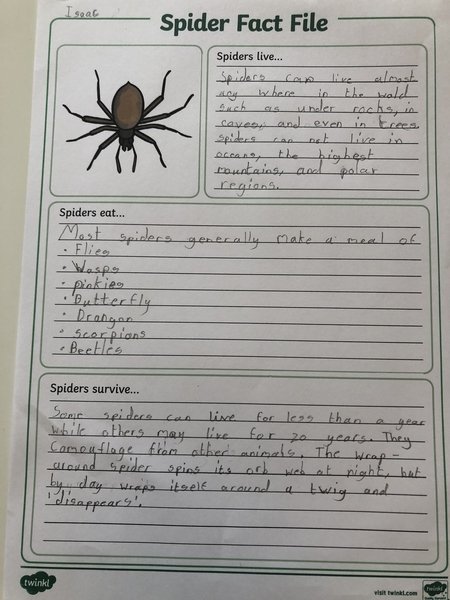 Isaac
Spider Fact File
Spiders live...
Spiders can live almost
any where in the wald
such as under rocks, in
caves, and even in trees.
spiders can not live in
oceans, the highest
mountains, and polar
regions.
Spiders eat...
Most spiders generally make a meal of
• Flies
• Wasps
• pinkies
• Butterfly
• Drangon
• scorpions
• Beetles
Spiders survive...
Some spiders can live for less than a year
while others may live for 20 years. They
Camouflage from other animals. The wrap-
around spider spins its orb web at night, but
by day wraps itself around a twig and
'disappears'.
twinkl
visit twinkl.com
twinkl